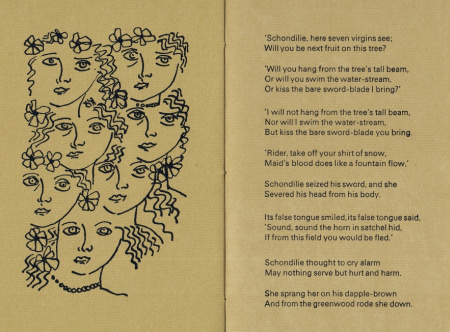 'Schondilie, here seven virgins see;
Will you be next fruit on this tree?
'Will you hang from the tree's tall beam,
Or will you swim the water-stream,
Or kiss the bare sword-blade I bring?'
'I will not hang from the tree's tall beam,
Nor will I swim the water-stream,
But kiss the bare sword-blade you bring.
'Rider, take off your shirt of snow,
Maid's blood does like a fountain flow.'
Schondilie seized his sword, and she
Severed his head from his body.
Its false tongue smiled, its false tongue said,
'Sound, sound the horn in satchel hid,
If from this field you would be fled.'
Schondilie thought to cry alarm
May nothing serve but hurt and harm.
She sprang her on his dapple-brown
And from the greenwood rode she down.